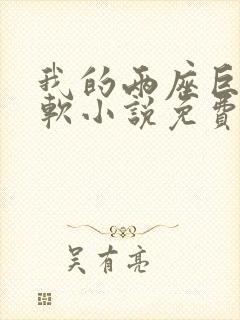 我的两座巨
軟小説免費
吴有亮